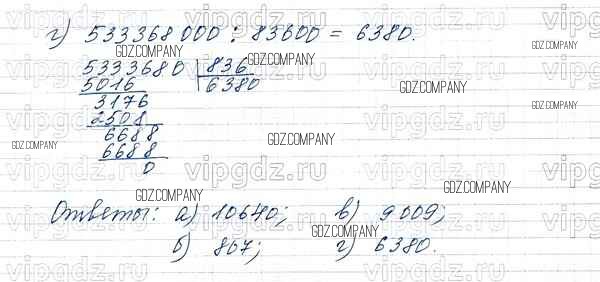 г) 533368000 : 83600 = 6380.
5333680 836
5016 6380
3176
2508
6688
6688
0
Ответы: а) 10640; в) 9009;
б) 807; г) 6380.
vipgdz.ru
GDZ.COMPANY